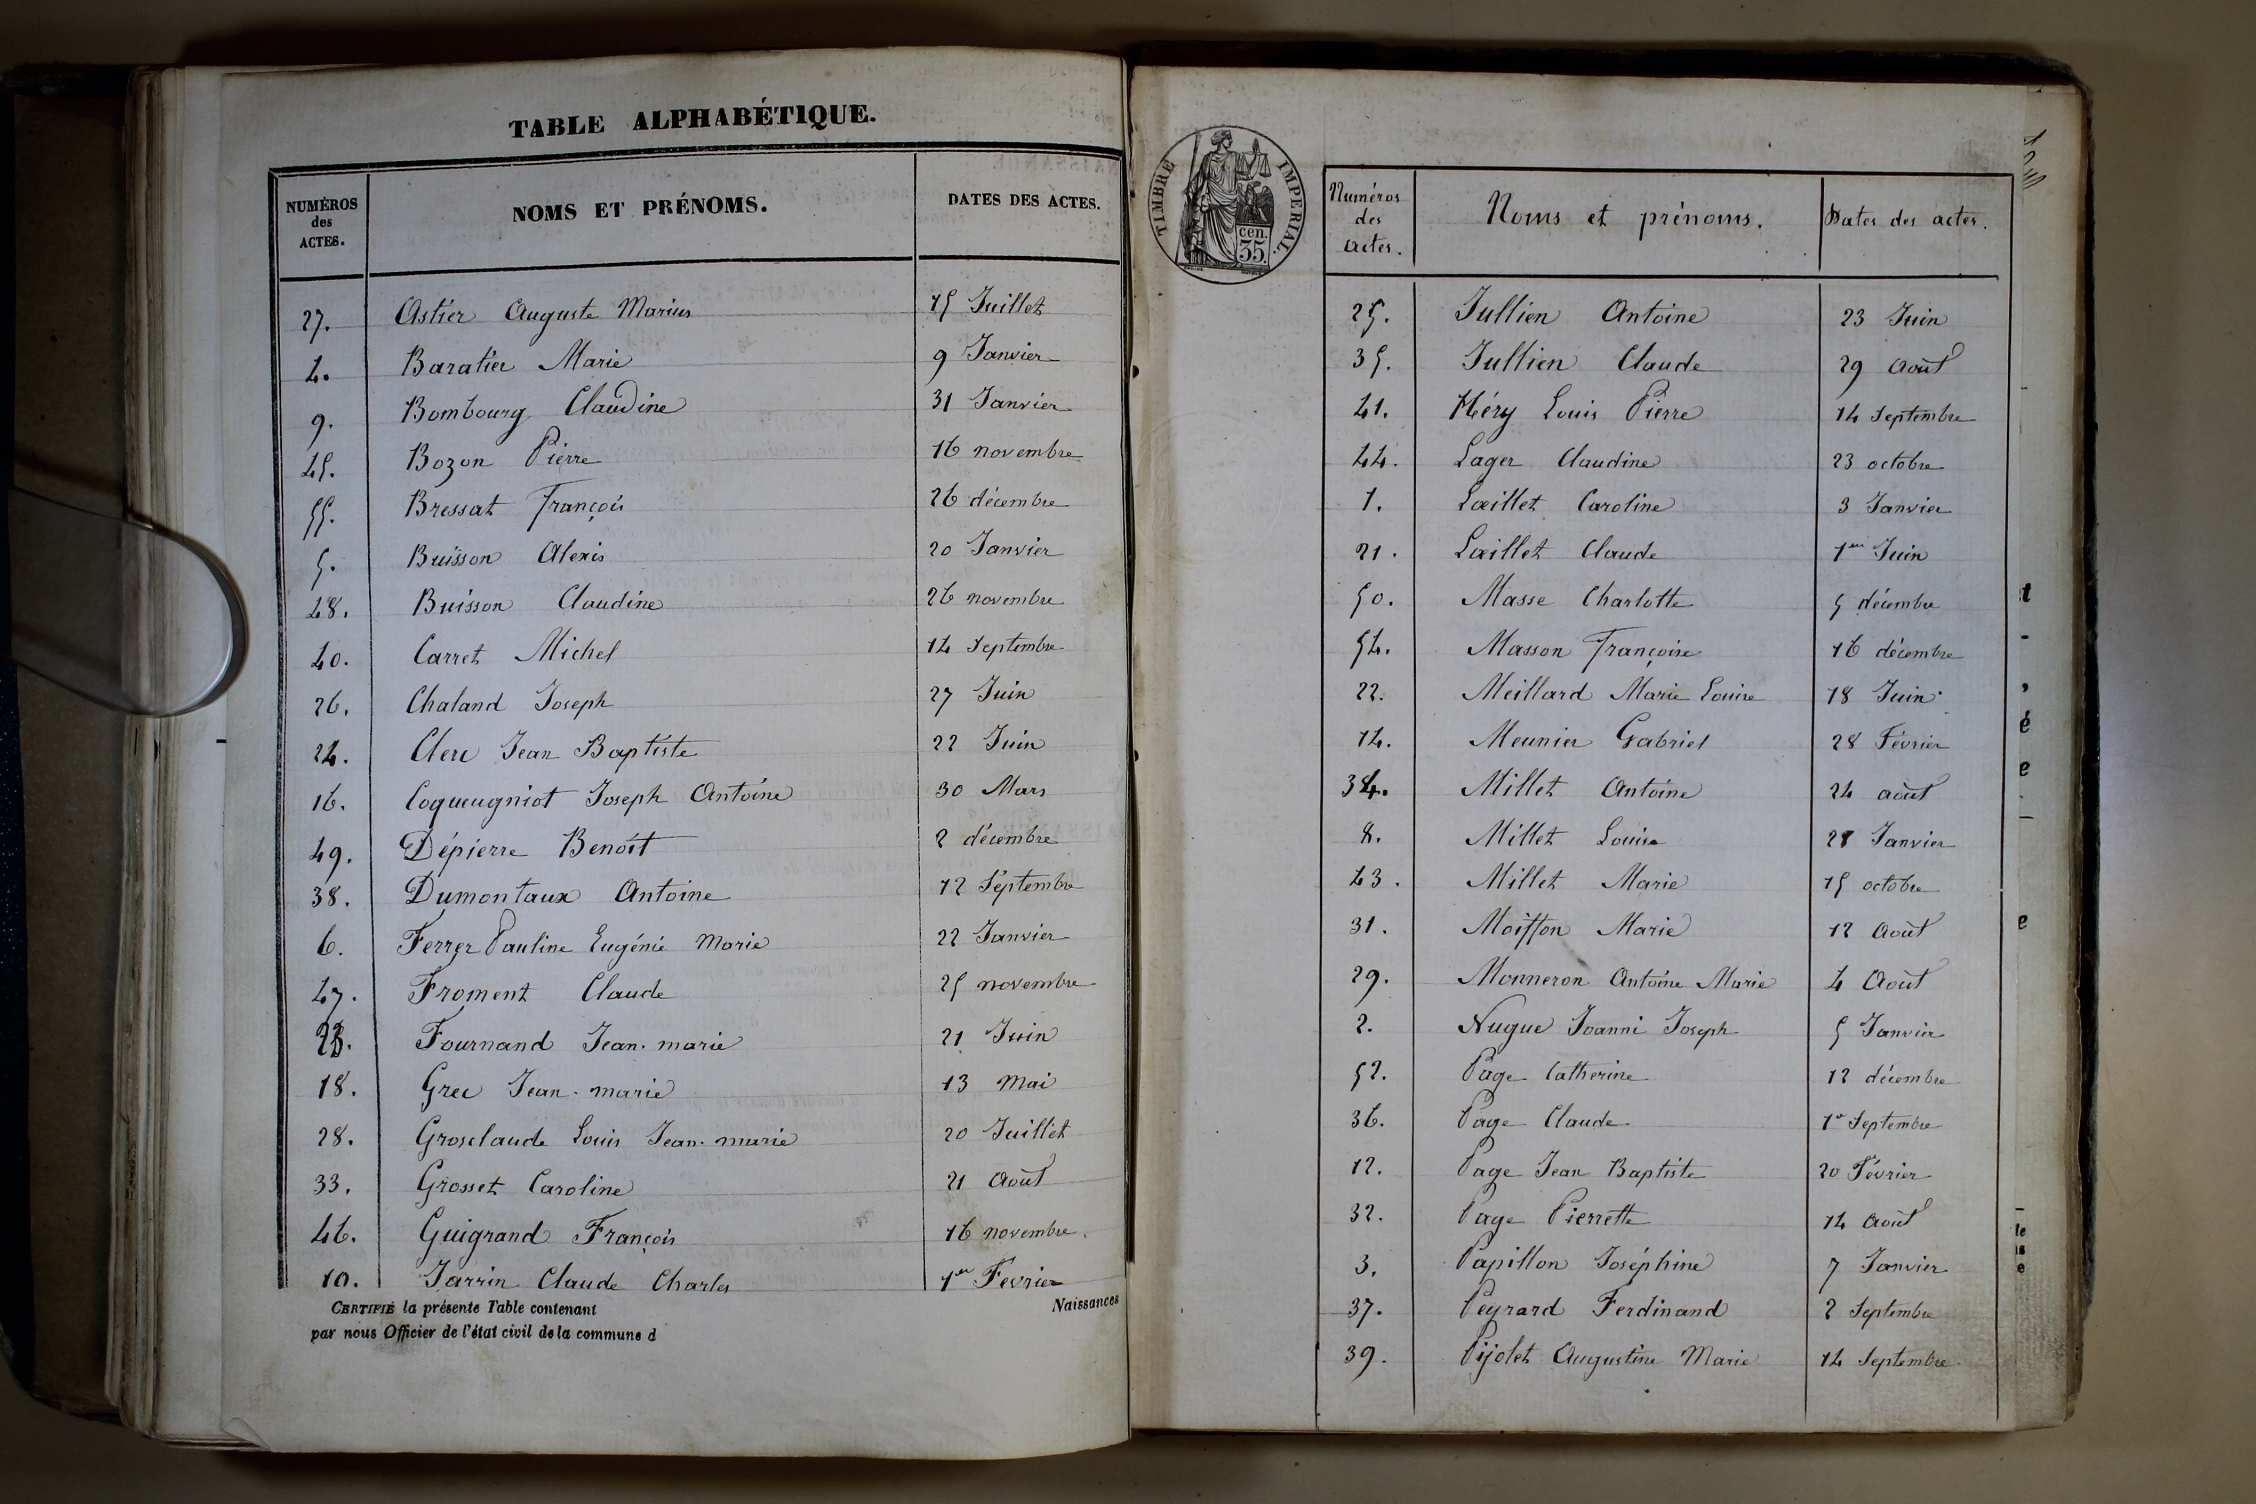 TABLE ALPHABÉTIQUE.
NUMÉROS des ACTES. NOMS ET PRÉNOMS. DATES DES ACTES.
27. Astier Auguste Marius 15 Juillet
4. Baratier Marie 9 Janvier
9. Bombourg Claudine 31 Janvier
45. Bozon Pierre 16 novembre
55. Bressat François 26 décembre
5. Buisson Alexis 20 Janvier
48. Buisson Claudine 26 novembre
40. Carret Michel 14 Septembre
26. Chaland Joseph 27 Juin
24. Clerc Jean Baptiste 22 Juin
16. Coqueugniot Joseph Antoine 30 Mars
49. Dépierre Benoît 2 décembre
38. Dumontaux Antoine 12 Septembre
6. Ferrer Pauline Eugénie Marie 22 Janvier
47. Froment Claude 25 novembre
23. Fournand Jean-marie 21 Juin
18. Grec Jean-marie 13 Mai
28. Grosclaude Louis Jean-marie 20 Juillet
33. Grosset Caroline 21 Août
46. Guigrand François 16 novembre.
10. Jarrin Claude Charles 1er Fevrier
CERTIFIÉ la présente Table contenant Naissances
par nous Officier de l'état civil de la commune d
TIMBRE IMPERIAL.
35 cen.
Numéros des actes. Noms et prénoms. Dates des actes.
25. Jullien Antoine 23 Juin
35. Jullien Claude 29 Août
41. Méry Louis Pierre 14 Septembre
44. Lager Claudine 23 octobre
1. Lœillet Caroline 3 Janvier
21. Lœillet Claude 1er Juin
50. Masse Charlotte 5 décembre
54. Masson Françoise 16 décembre
22. Meillard Marie Louise 18 Juin
14. Meunier Gabriel 28 Février
34. Millet Antoine 24 août
8. Millet Louise 28 Janvier
43. Millet Marie 15 octobre
31. Moisson Marie 12 Août
29. Monneron Antoine Marie 4 Août
2. Nugue Joanni Joseph 5 Janvier
52. Page Catherine 12 décembre
36. Page Claude 1er Septembre
12. Page Jean Baptiste 20 Février
32. Page Pierrette 14 Août
3. Papillon Joséphine 7 Janvier
37. Peyrard Ferdinand 2 Septembre
39. Pijolet Augustine Marie 14 Septembre